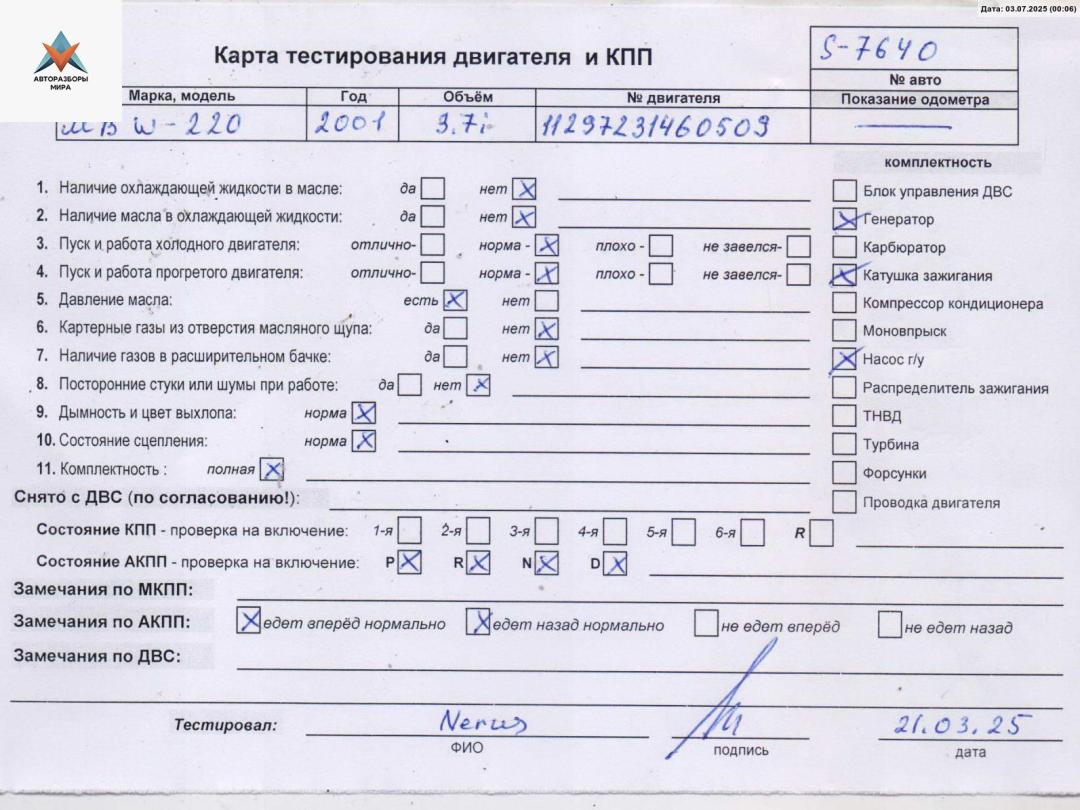 Дата: 03.07.2025 (00:06)
АВТОРАЗБОРЫ
МИРА
Карта тестирования двигателя и КПП
S-7640
№ авто
Марка, модель Год Объём № двигателя Показание одометра
МВ W-220 2001 3.7i 11297231460509
комплектность
1. Наличие охлаждающей жидкости в масле: да нет
2. Наличие масла в охлаждающей жидкости: да нет
3. Пуск и работа холодного двигателя: отлично- норма - плохо - не завелся-
4. Пуск и работа прогретого двигателя: отлично- норма - плохо - не завелся-
5. Давление масла: есть нет
6. Картерные газы из отверстия масляного щупа: да нет
7. Наличие газов в расширительном бачке: да нет
8. Посторонние стуки или шумы при работе: да нет
9. Дымность и цвет выхлопа: норма
10. Состояние сцепления: норма
11. Комплектность : полная
Блок управления ДВС
Генератор
Карбюратор
Катушка зажигания
Компрессор кондиционера
Моновпрыск
Насос г/у
Распределитель зажигания
ТНВД
Турбина
Форсунки
Проводка двигателя
Снято с ДВС (по согласованию!):
Состояние КПП - проверка на включение: 1-я 2-я 3-я 4-я 5-я 6-я R
Состояние АКПП - проверка на включение: P R N D
Замечания по МКПП:
Замечания по АКПП: едет вперёд нормально едет назад нормально не едет вперёд не едет назад
Замечания по ДВС:
Тестировал: 21.03.25
ФИО подпись дата